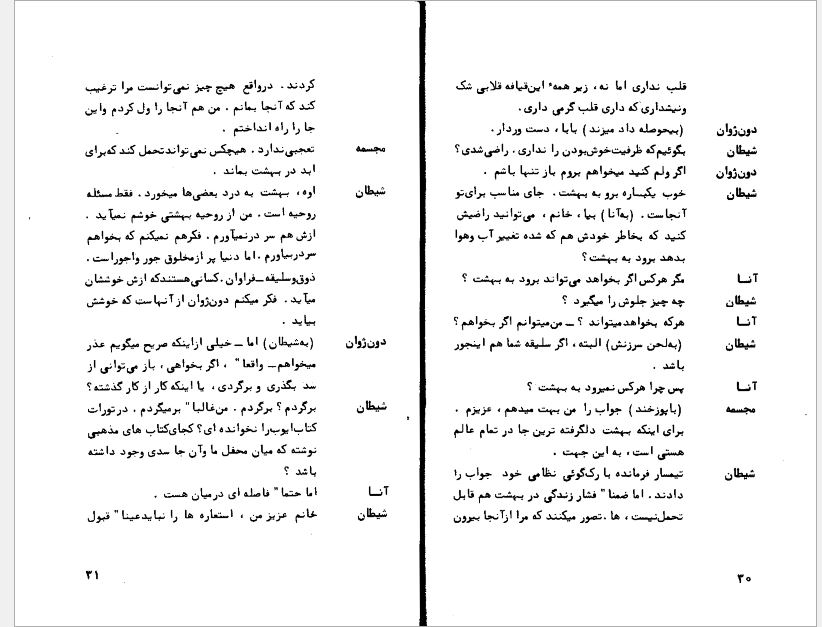 قلب نداری اما نه، زیر همهٔ این‌قیافه قلابی شک
ونیشداری‌که داری قلب گرمی داری.
دون‌ژوان (بیحوصله داد میزند) بابا، دست وردار.
شیطان بگوئیم‌که ظرفیت‌خوش‌بودن را نداری. راضی‌شدی؟
دون‌ژوان اگر ولم کنید میخواهم بروم باز تنها باشم.
شیطان خوب یکساره برو به بهشت. جای مناسب برای‌تو
آنجاست. (به‌آنا) بیا، خانم، می‌توانید راضیش
کنید که بخاطر خودش هم که شده تغییر آب وهوا
بدهد برود به بهشت؟
آنـا مگر هرکس اگر بخواهد می‌تواند برود به بهشت؟
شیطان چه چیز جلوش را میگیرد؟
آنـا هرکه بخواهدمیتواند؟ ــ من‌میتوانم اگر بخواهم؟
شیطان (به‌لحن سرزنش) البته، اگر سلیقه شما هم اینجور
باشد.
آنـا پس چرا هرکس نمیرود به بهشت؟
مجسمه (باپوزخند) جواب را من بهت میدهم، عزیزم.
برای اینکه بهشت دلگرفته ترین جا در تمام عالم
هستی است، به این جهت.
شیطان تیمسار فرمانده با رک‌گوئی نظامی خود جواب را
دادند. اما ضمنا" فشار زندگی در بهشت هم قابل
تحمل‌نیست، ها. تصور میکنند که مرا ازآنجا بیرون
۳۰
کردند. درواقع هیچ چیز نمی‌توانست مرا ترغیب
کند که آنجا بمانم. من هم آنجا را ول کردم واین
جا را راه انداختم.
مجسمه تعجبی‌ندارد. هیچکس نمی‌تواندتحمل کند که‌برای
ابد در بهشت بماند.
شیطان اوه، بهشت به درد بعضی‌ها میخورد. فقط مسئله
روحیه است. من از روحیه بهشتی خوشم نمیآید.
ازش هم سر درنمیآورم. فکرهم نمیکنم که بخواهم
سردربیاورم. اما دنیا پر ازمخلوق جور واجوراست.
ذوق‌وسلیقه‌ــ‌فراوان. کسانی‌هستندکه ازش خوششان
میآید. فکر میکنم دون‌ژوان از آنهاست که خوشش
بیاید.
دون‌ژوان (به‌شیطان) اما ــ خیلی ازاینکه صریح میگویم عذر
میخواهم‌ــ واقعا"، اگر بخواهی، باز می‌توانی از
سد بگذری و برگردی، یا اینکه کار از کار گذشته؟
شیطان برگردم؟ برگردم. من‌غالبا" برمیگردم. درتورات
کتاب‌ایوب‌را نخوانده ای؟ کجای‌کتاب های مذهبی
نوشته که میان محفل ما وآن جا سدی وجود داشته
باشد؟
آنـا اما حتما" فاصله ای درمیان هست.
شیطان خانم عزیز من، استعاره ها را نبایدعینا" قبول
۳۱